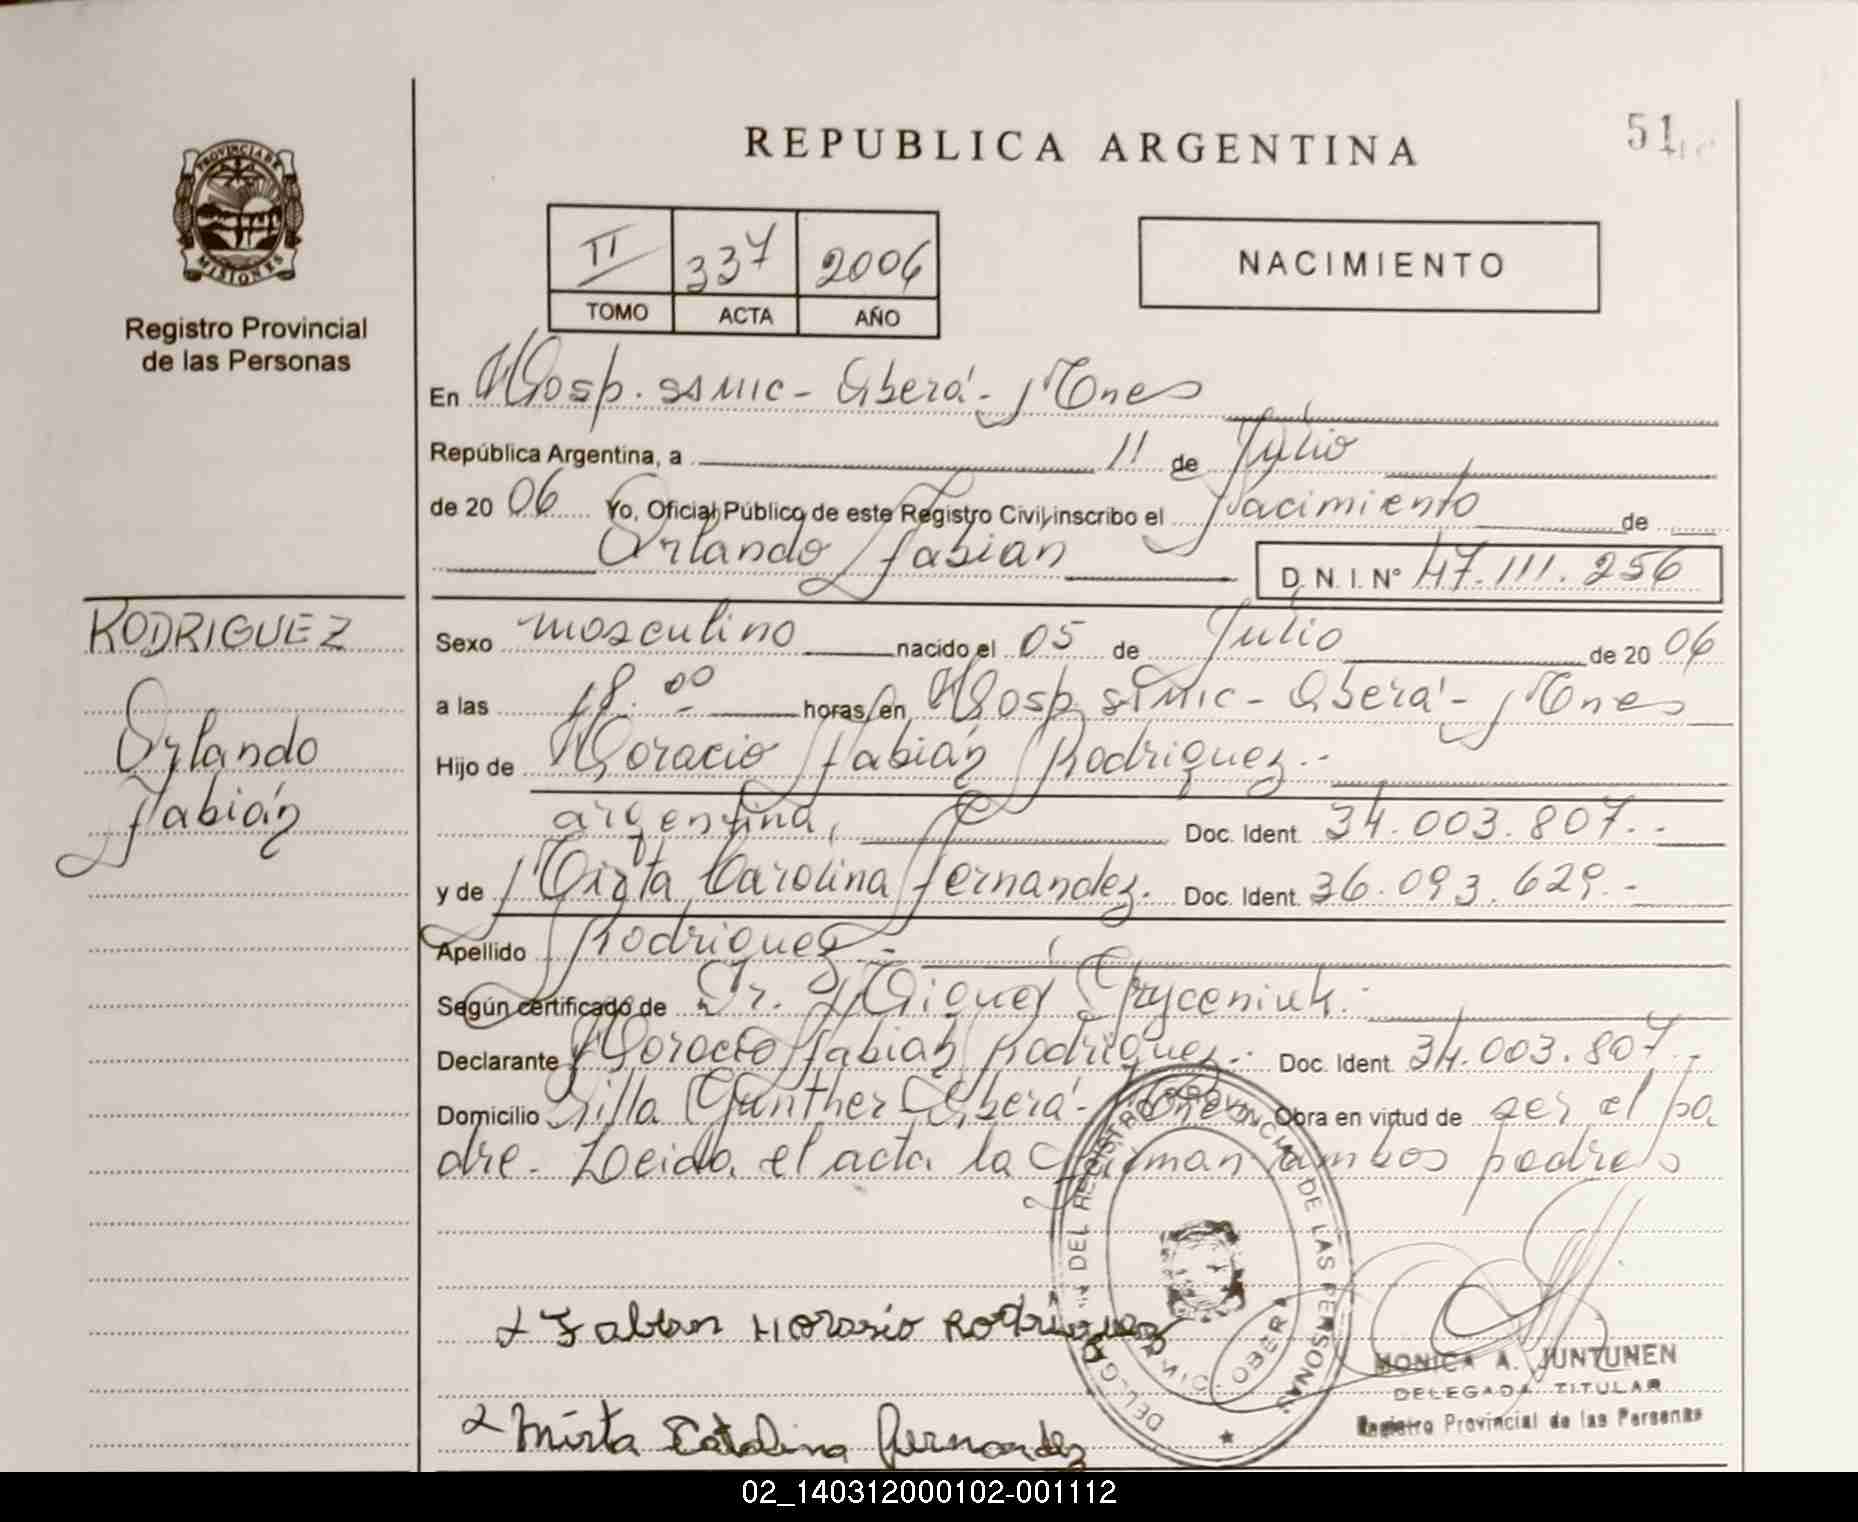 REPUBLICA ARGENTINA
51
PROVINCIA DE MISIONES
Registro Provincial
de las Personas
II 337 2006
TOMO ACTA AÑO
NACIMIENTO
En Hosp. SAMIC - Oberá - Mnes
República Argentina, a 11 de Julio
de 2006 Yo, Oficial Público de este Registro Civil inscribo el Nacimiento de
Orlando Fabian D.N.I. N° 47.111.256
RODRIGUEZ
Orlando
Fabián
Sexo masculino nacido el 05 de Julio de 2006
a las 18.00 horas, en Hosp. SAMIC - Oberá - Mnes
Hijo de Horacio Fabián Rodriguez.-
argentina, Doc. Ident. 34.003.807.-
y de Mirta Carolina Fernandez. Doc. Ident. 36.093.629.-
Apellido Rodriguez.-
Según certificado de Dr. Miguel Gryceniuk.-
Declarante Horacio Fabián Rodriguez.- Doc. Ident. 34.003.807.-
Domicilio Villa Gunther Oberá - Mnes Obra en virtud de ser el pa
dre. Leida el acta la firman ambos padres
Fabian Horasio Rodriguez
Mirta Catalina Fernandez
DEL REGISTRO PROVINCIAL DE LAS PERSONAS
OBERA
MONICA A. JUNTUNEN
DELEGADA TITULAR
Registro Provincial de las Personas
02_140312000102-001112